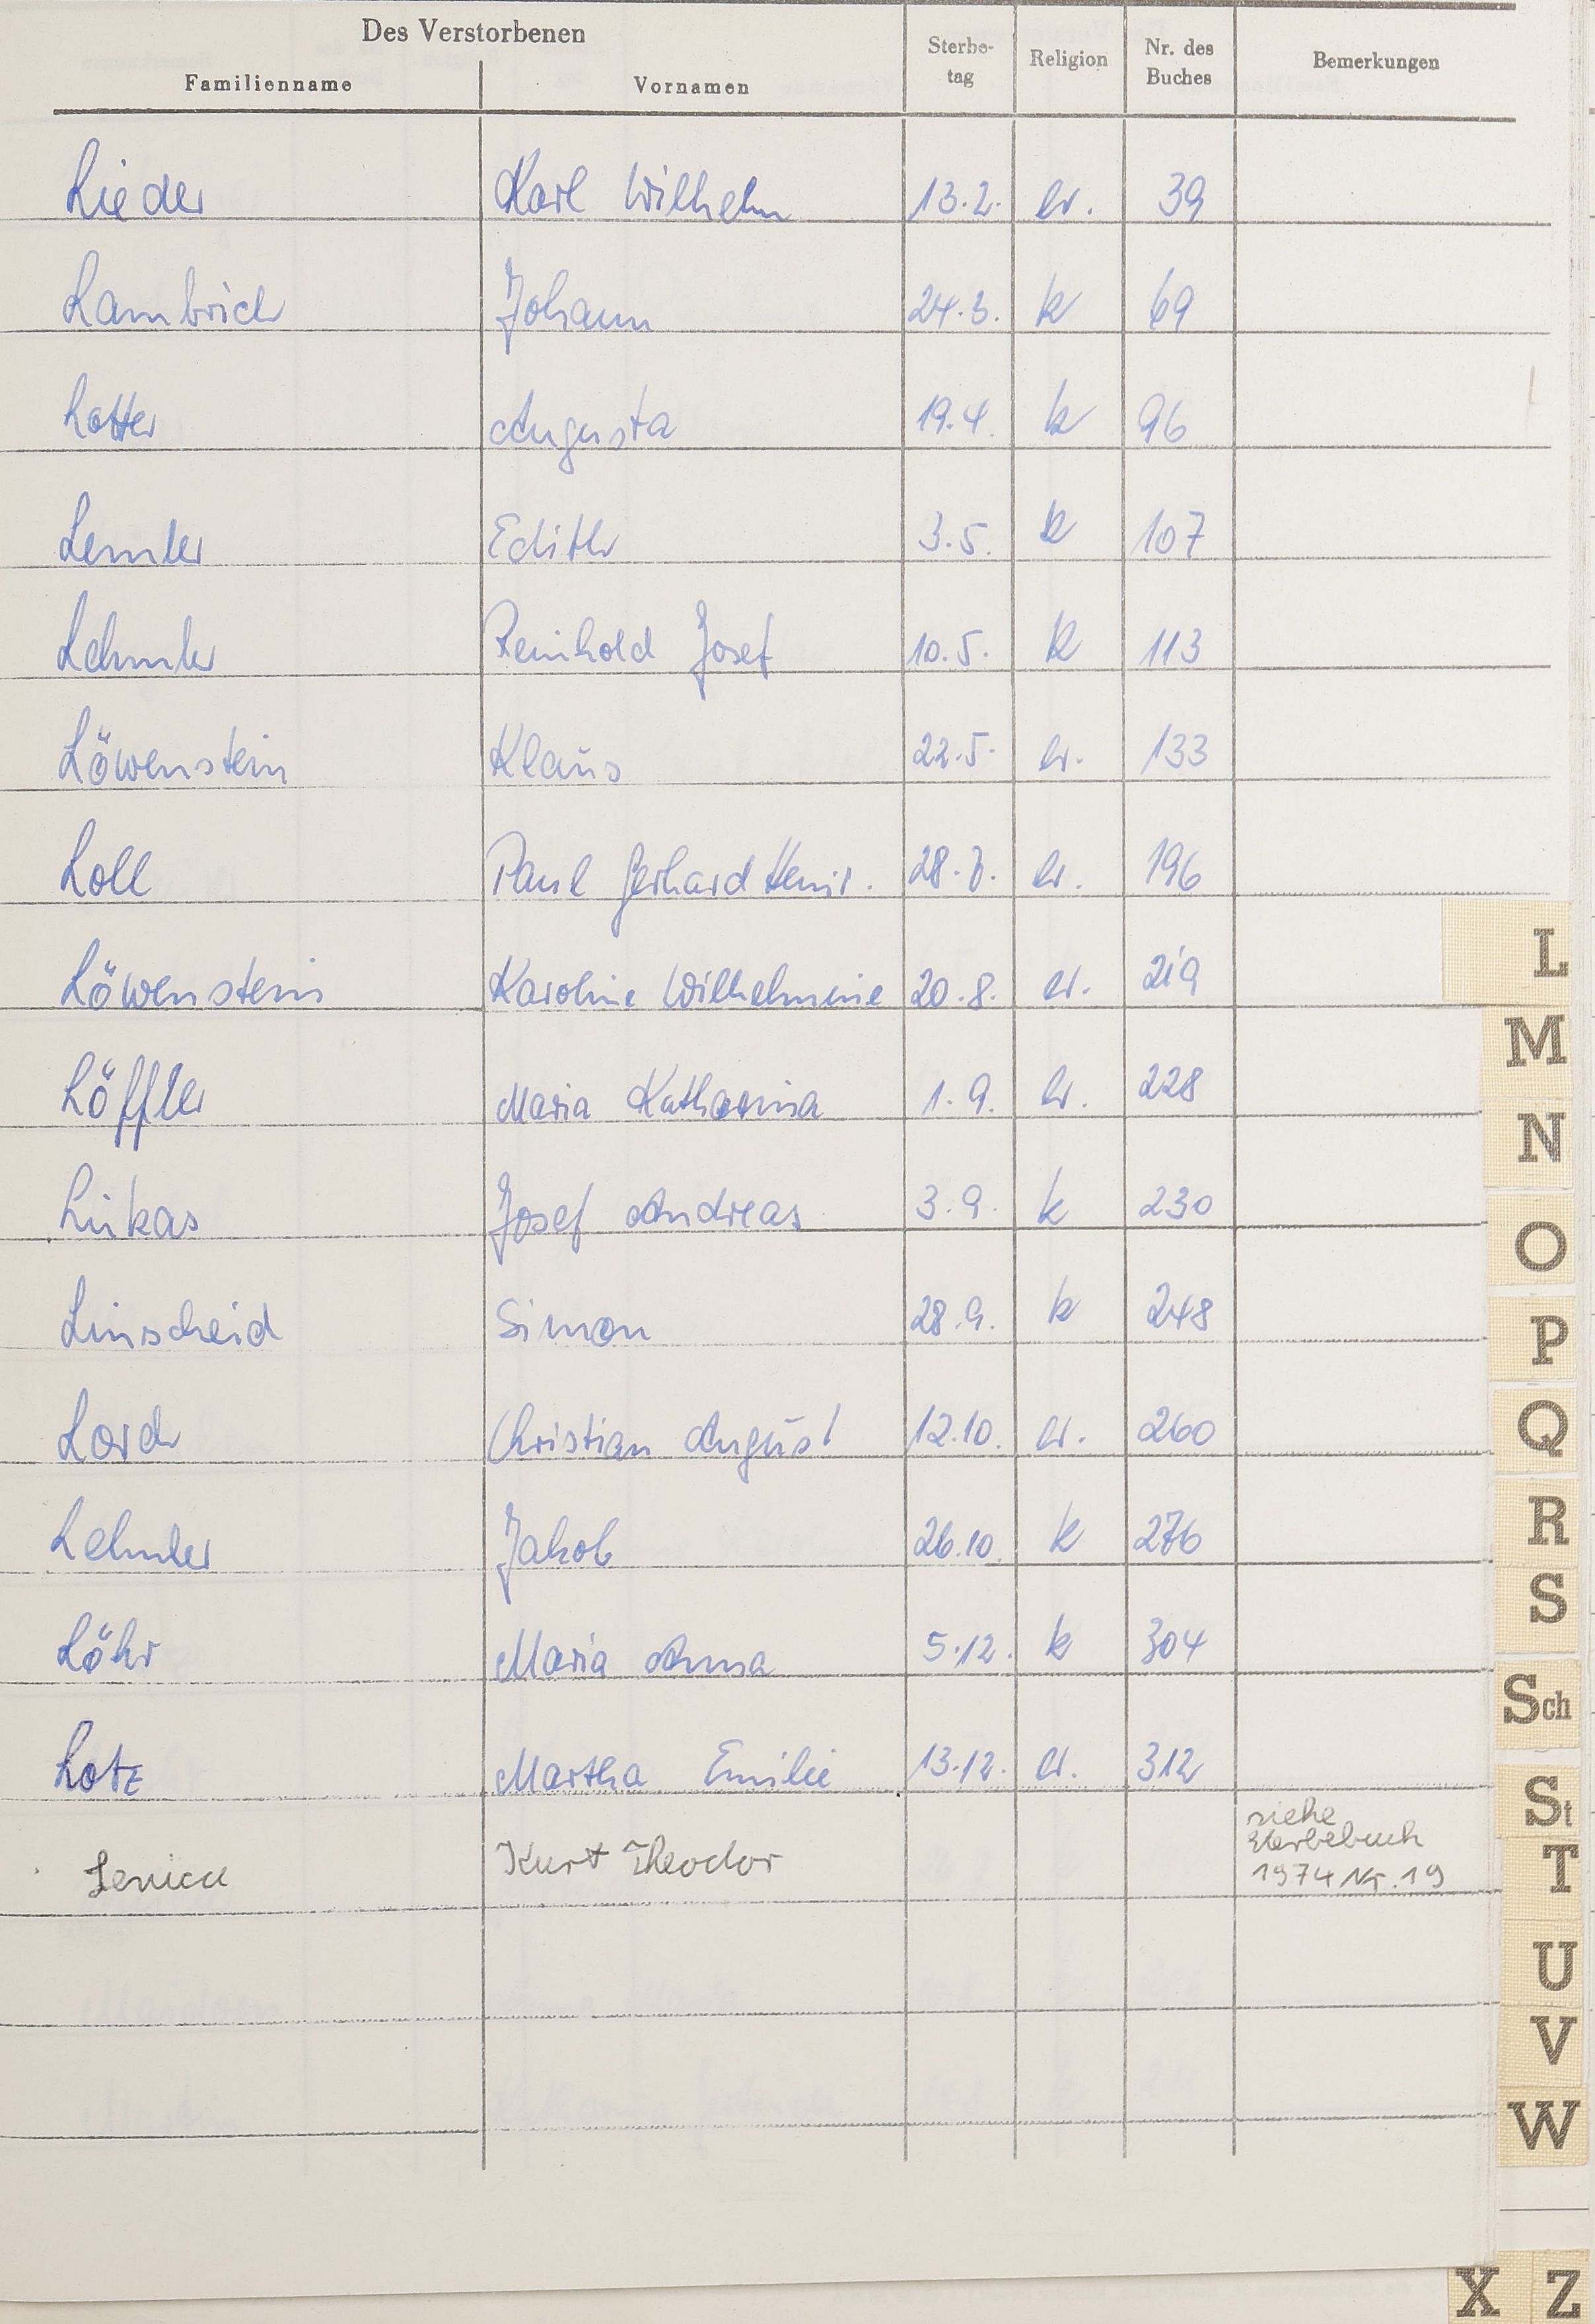 Des Verstorbenen
Familienname Vornamen Sterbe-tag Religion Nr. des Buches Bemerkungen
Lieder Karl Wilhelm 13.2. ev. 39
Lambrich Johann 24.3. k 69
Lotter Augusta 19.4. k 96
Lemler Edith 3.5. k 107
Lehmler Reinhold Josef 10.5. k 113
Löwenstein Klaus 22.5. ev. 133
Loll Paul Gerhard Heinr. 28.7. ev. 196
Löwenstein Karoline Wilhelmine 20.8. ev. 219
Löffler Maria Katharina 1.9. ev. 228
Lukas Josef Andreas 3.9. k 230
Linscheid Simon 28.9. k 248
Lorch Christian August 12.10. ev. 260
Lehmler Jakob 26.10. k 276
Löhr Maria Anna 5.12. k 304
Lotz Martha Emilie 13.12. ev. 312
Kurt Theodor siehe
Sterbebuch
1974 Nr. 19
L
M
N
O
P
Q
R
S
Sch
St
T
U
V
W
X Z